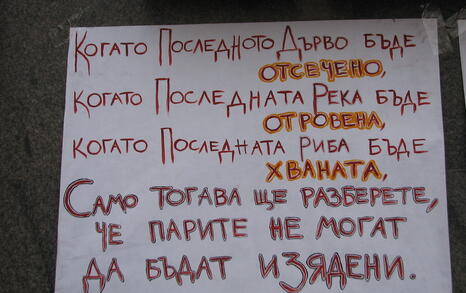 Когато Последното Дърво бъде
отсечено,
когато Последната Река бъде
отровена,
когато Последната Риба бъде
хваната,
Само тогава ще разберете,
че парите не могат
да бъдат изядени.